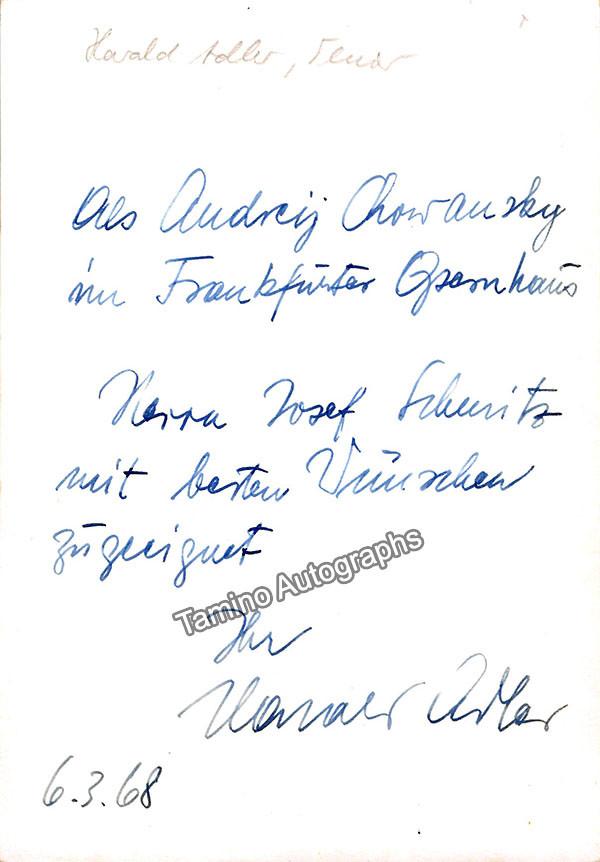 Harald Adler, Tenor
Als Andreij Chowansky
im Frankfurter Opernhaus
Herrn Josef Schmitz
mit besten Wünschen
zugeeignet
Tamino Autographs
Ihr
Harald Adler
6.3.68